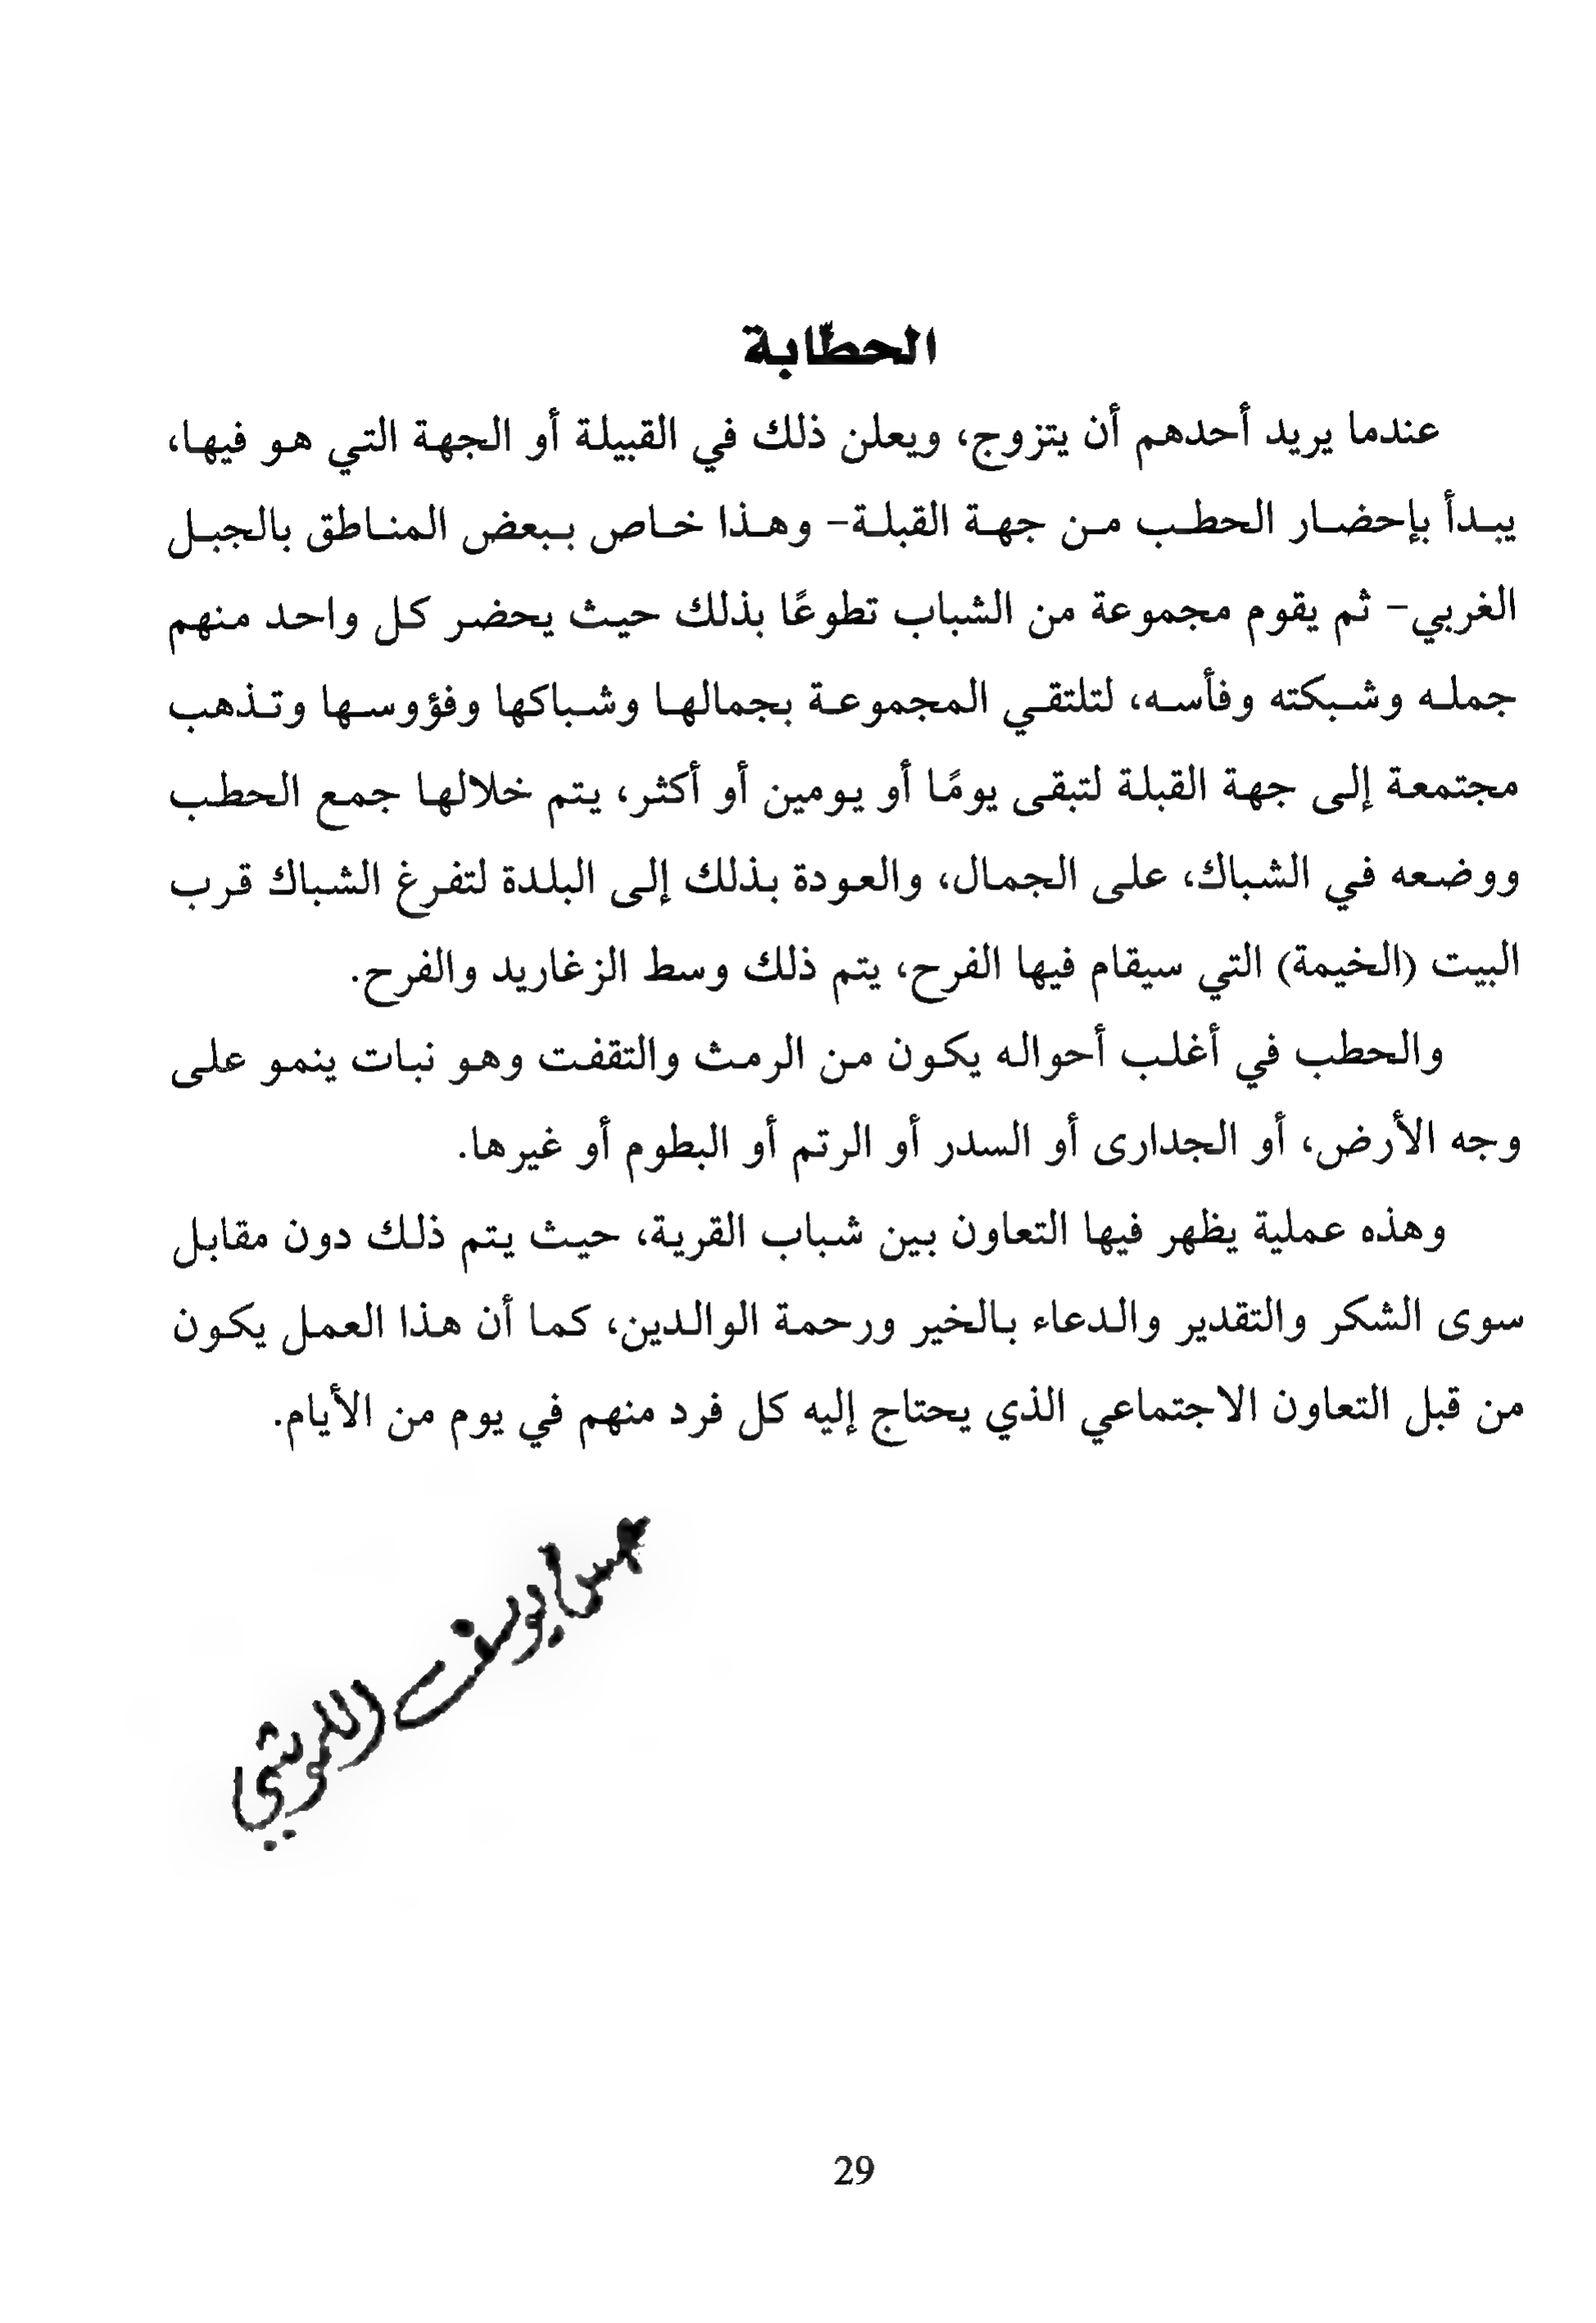 الحطّابة
عندما يريد أحدهم أن يتزوج، ويعلن ذلك في القبيلة أو الجهة التي هو فيها،
يبدأ بإحضار الحطب من جهة القبلة- وهذا خاص ببعض المناطق بالجبل
الغربي- ثم يقوم مجموعة من الشباب تطوعًا بذلك حيث يحضر كل واحد منهم
جمله وشبكته وفأسه، لتلتقي المجموعة بجمالها وشباكها وفؤوسها وتذهب
مجتمعة إلى جهة القبلة لتبقى يومًا أو يومين أو أكثر، يتم خلالها جمع الحطب
ووضعه في الشباك، على الجمال، والعودة بذلك إلى البلدة لتفرغ الشباك قرب
البيت (الخيمة) التي سيقام فيها الفرح، يتم ذلك وسط الزغاريد والفرح.
والحطب في أغلب أحواله يكون من الرمث والتقفت وهو نبات ينمو على
وجه الأرض، أو الجدارى أو السدر أو الرتم أو البطوم أو غيرها.
وهذه عملية يظهر فيها التعاون بين شباب القرية، حيث يتم ذلك دون مقابل
سوى الشكر والتقدير والدعاء بالخير ورحمة الوالدين، كما أن هذا العمل يكون
من قبل التعاون الاجتماعي الذي يحتاج إليه كل فرد منهم في يوم من الأيام.
يوسف
29